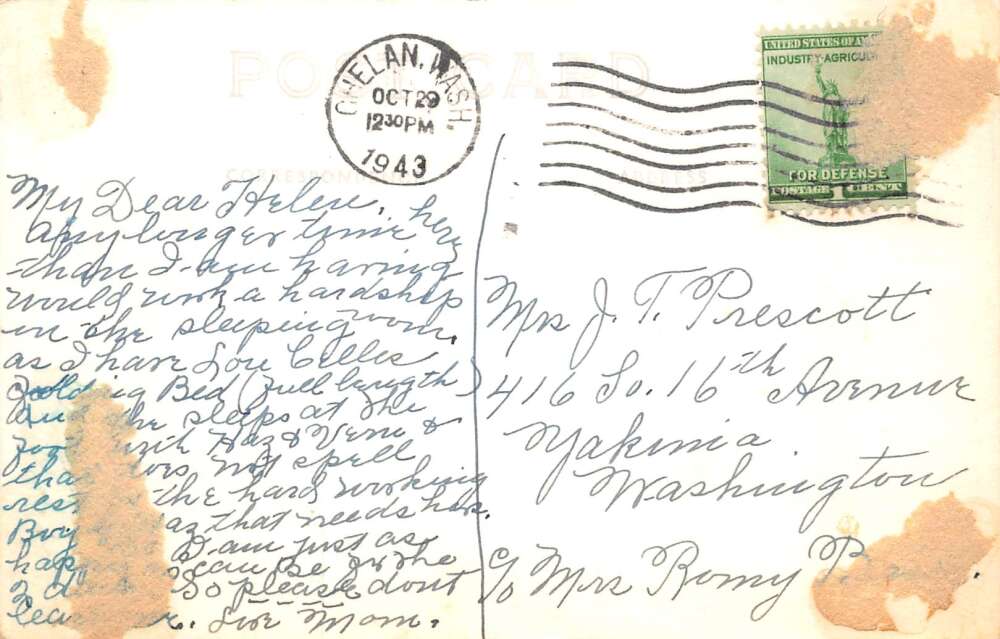 POST CARD
CHELAN, WASH.
OCT 29
12 30 PM
1943
UNITED STATES OF
INDUSTRY-AGRICUL
FOR DEFENSE
POSTAGE 1 CENT
CORRESPONDENCE
ADDRESS
My Dear Helen, here
any longer time
than I am having
would work a hardship
on the sleeping room.
as I have Lou Celles
Folding Bed (full length)
and she sleeps at the
foot with Haz & Vene &
that does not spell
rest the hard working
Boy Haz that needs his.
I am just as
can be for the
2 So please dont
Love Mom.
Mrs J. T. Prescott
416 So. 16th Avenue
Yakima
Washington
c/o Mrs Romy